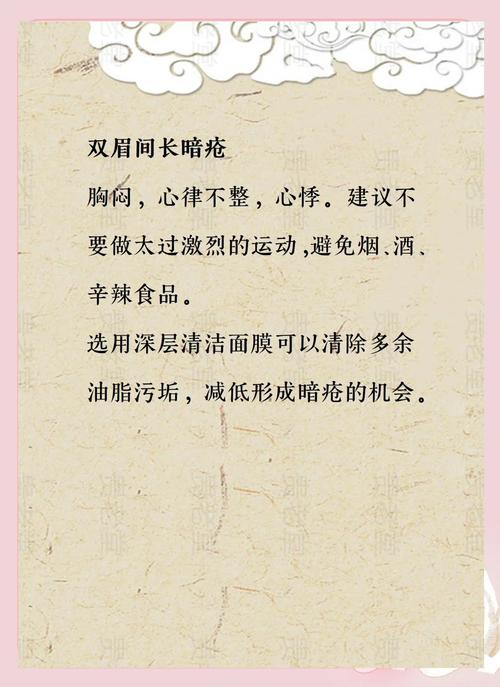 双眉间长暗疮
胸闷，心律不整，心悸。建议不
要做太过激烈的运动,避免烟、酒、
辛辣食品。
选用深层清洁面膜可以清除多余
油脂污垢，减低形成暗疮的机会。